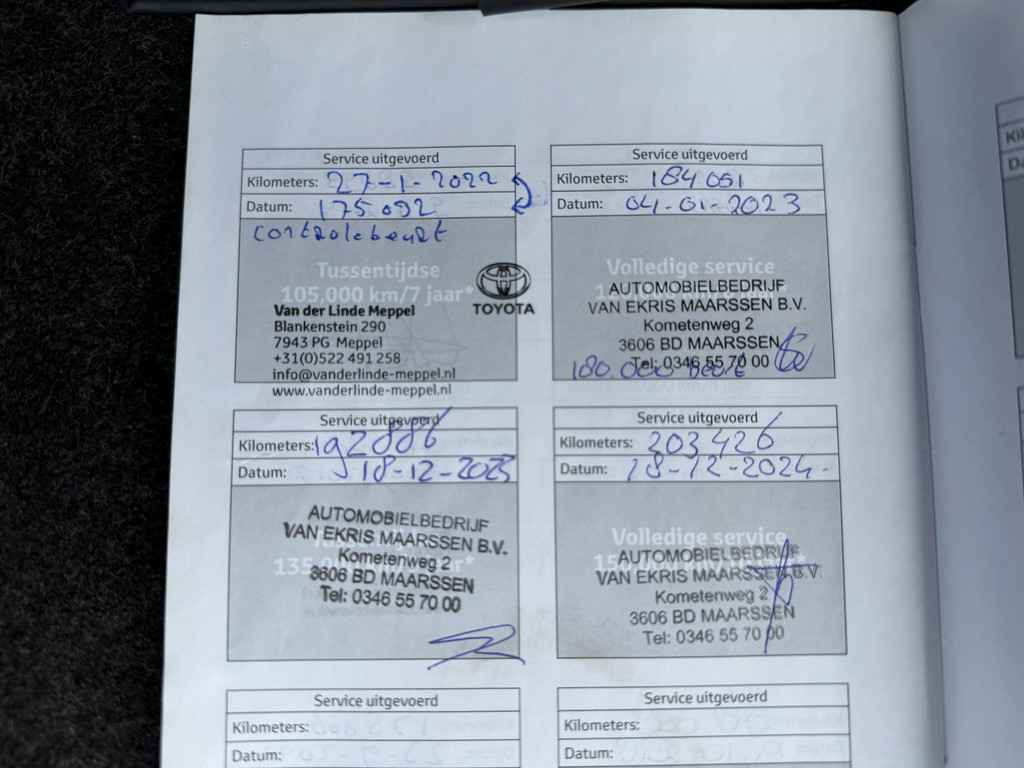 Service uitgevoerd
Kilometers: 27-1-2022
Datum: 175092
Controlebeurt
Tussentijdse
105.000 km/7 jaar*
TOYOTA
Van der Linde Meppel
Blankenstein 290
7943 PG Meppel
+31(0)522 491 258
info@vanderlinde-meppel.nl
www.vanderlinde-meppel.nl
Service uitgevoerd
Kilometers: 184051
Datum: 04-01-2023
Volledige service
AUTOMOBIELBEDRIJF
VAN EKRIS MAARSSEN B.V.
Kometenweg 2
3606 BD MAARSSEN
Tel: 0346 55 70 00
180.000
Service uitgevoerd
Kilometers: 192886
Datum: 18-12-2023
AUTOMOBIELBEDRIJF
VAN EKRIS MAARSSEN B.V.
Kometenweg 2
3606 BD MAARSSEN
Tel: 0346 55 70 00
Service uitgevoerd
Kilometers: 203426
Datum: 18-12-2024-
Volledige service
AUTOMOBIELBEDRIJF
VAN EKRIS MAARSSEN B.V.
Kometenweg 2
3606 BD MAARSSEN
Tel: 0346 55 70 00
Service uitgevoerd
Kilometers:
Datum:
Service uitgevoerd
Kilometers:
Datum: